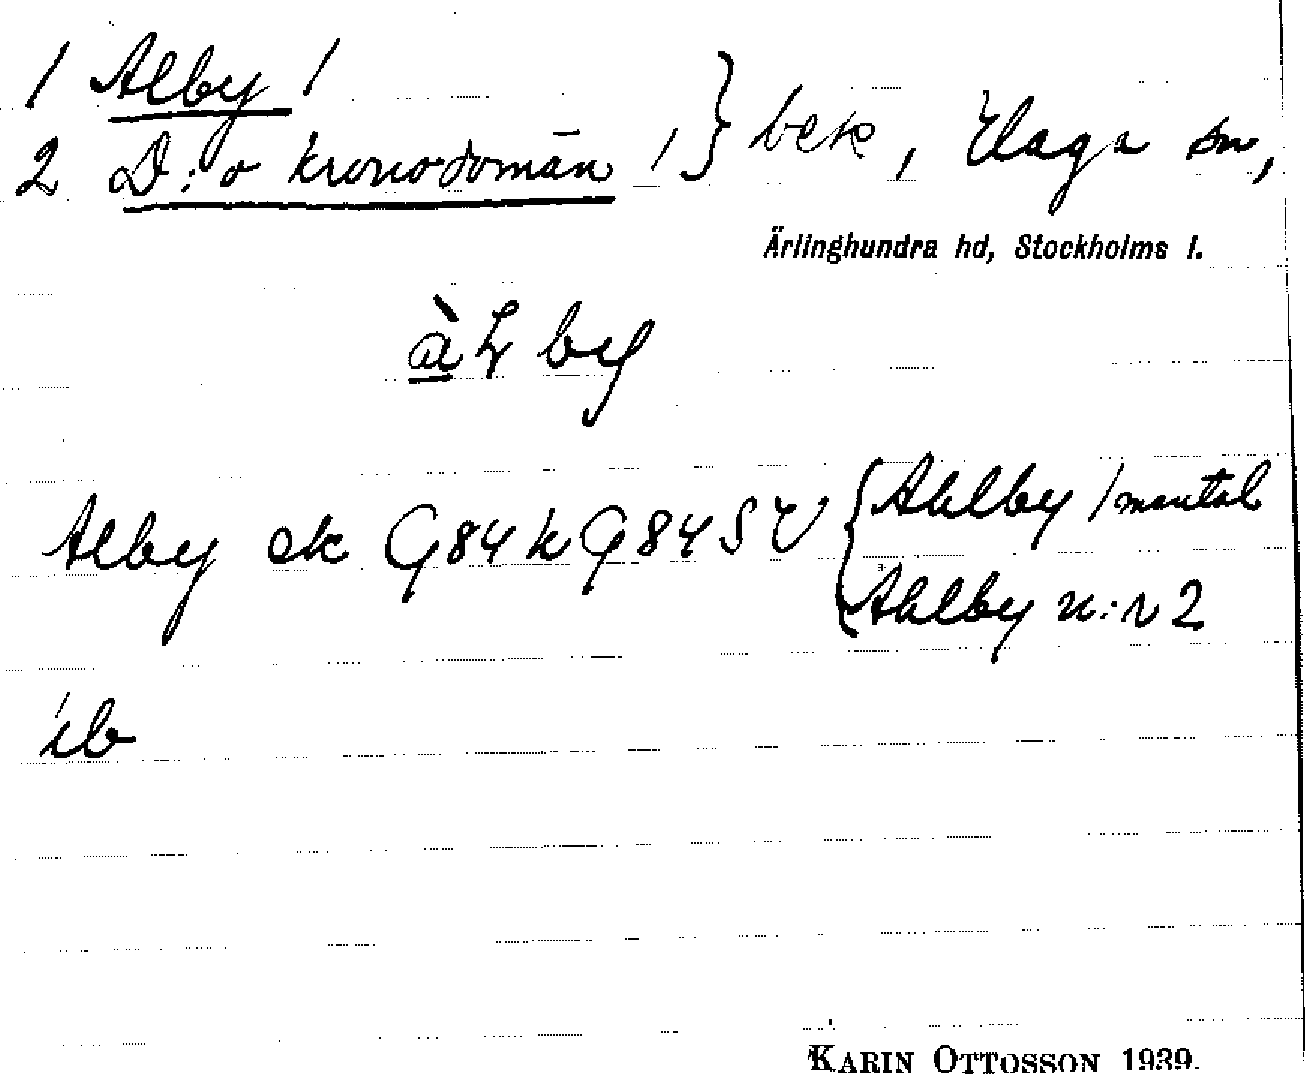 1 Alby 1
2 D:o kronodomän 1 } bek, Haga sn,
Ärlinghundra hd, Stockholms l.
àƚby
Alby ek G84 k G84 SV { Ahlby 1 mantal
Ahlby n:r 2
ib
KARIN OTTOSSON 1939.